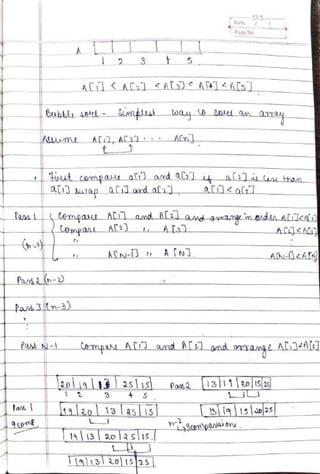 Date: / /
Page No.
A
1 2 3 4 5
A[1] < A[2] < A[3] < A[4] < A[5]
Bubble sort - Simplest way to sort an array
Assume A[1], A[2] . . . A[n]
First compare a[1] and a[2] if a[2] is less than
a[1] swap a[1] and a[2]. a[1] < a[2]
Pass 1 Compare A[1] and A[2] and arrange in order A[1]<A[2]
Compare A[2] ,, A[3] A[2]<A[3]
(n-1)
,, A[N-1] ,, A[N] A[N-1]<A[N]
Pass 2 (n-2)
Pass 3 (n-3)
Pass N-1 Compare A[1] and A[2] and arrange A[1]<A[2]
20 19 13 25 15 Pass 2 13 19 20 15 25
1 2 3 4 5
Pass 1 19 20 13 25 15 13 19 15 20 25
4 comp n-2 3 comparison
19 13 20 25 15
19 13 20 15 25